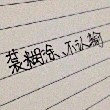 蒙糊涂、不认输